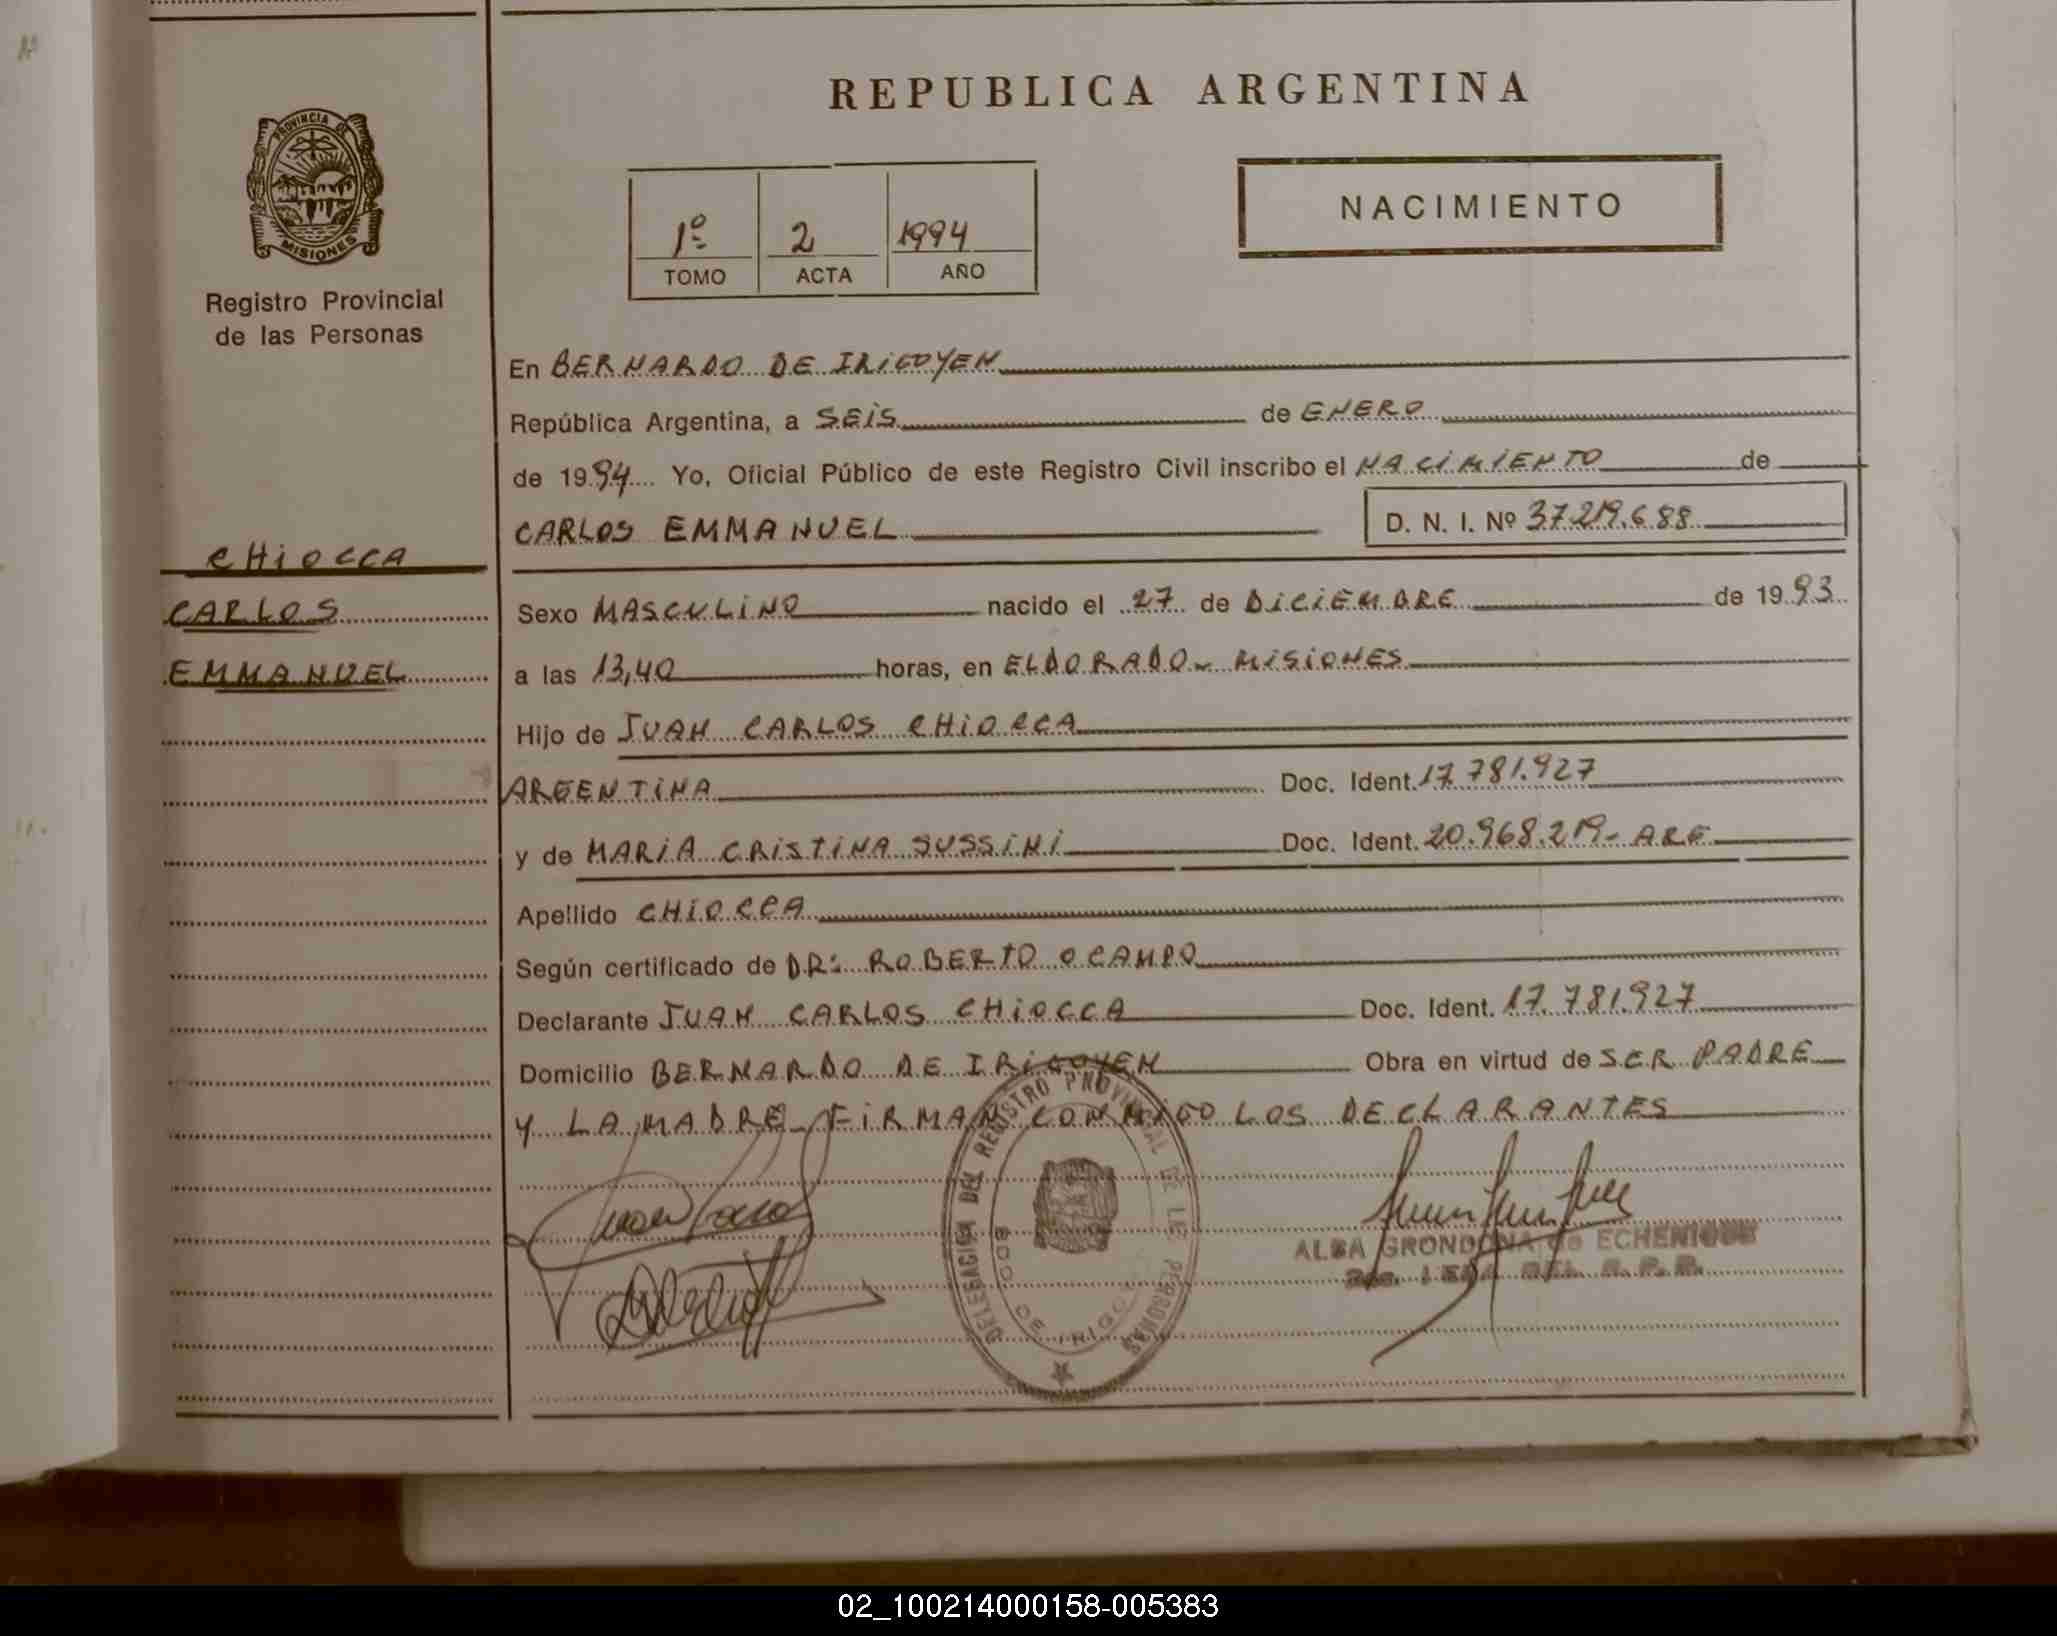 PROVINCIA DE
MISIONES
Registro Provincial
de las Personas
CHIOCCA
CARLOS
EMMANUEL
REPUBLICA ARGENTINA
1º 2 1994
TOMO ACTA AÑO
NACIMIENTO
En BERNARDO DE IRIGOYEN
República Argentina, a SEIS de ENERO
de 1994 Yo, Oficial Público de este Registro Civil inscribo el NACIMIENTO de
CARLOS EMMANUEL D. N. I. Nº 37.219.688
Sexo MASCULINO nacido el 27 de DICIEMBRE de 1993
a las 13,40 horas, en ELDORADO - MISIONES
Hijo de JUAN CARLOS CHIOCCA
ARGENTINA Doc. Ident. 17.781.927
y de MARIA CRISTINA SUSSINI Doc. Ident. 20.968.219 - ARG
Apellido CHIOCCA
Según certificado de DR: ROBERTO OCAMPO
Declarante JUAN CARLOS CHIOCCA Doc. Ident. 17.781.927
Domicilio BERNARDO DE IRIGOYEN Obra en virtud de SER PADRE
Y LA MADRE - FIRMAN CONMIGO LOS DECLARANTES
DELEGACION DEL REGISTRO PROVINCIAL DE LE PERSONAS
BDO DE IRIGOY
ALBA GRONDONA de ECHENIQUE
02_100214000158-005383